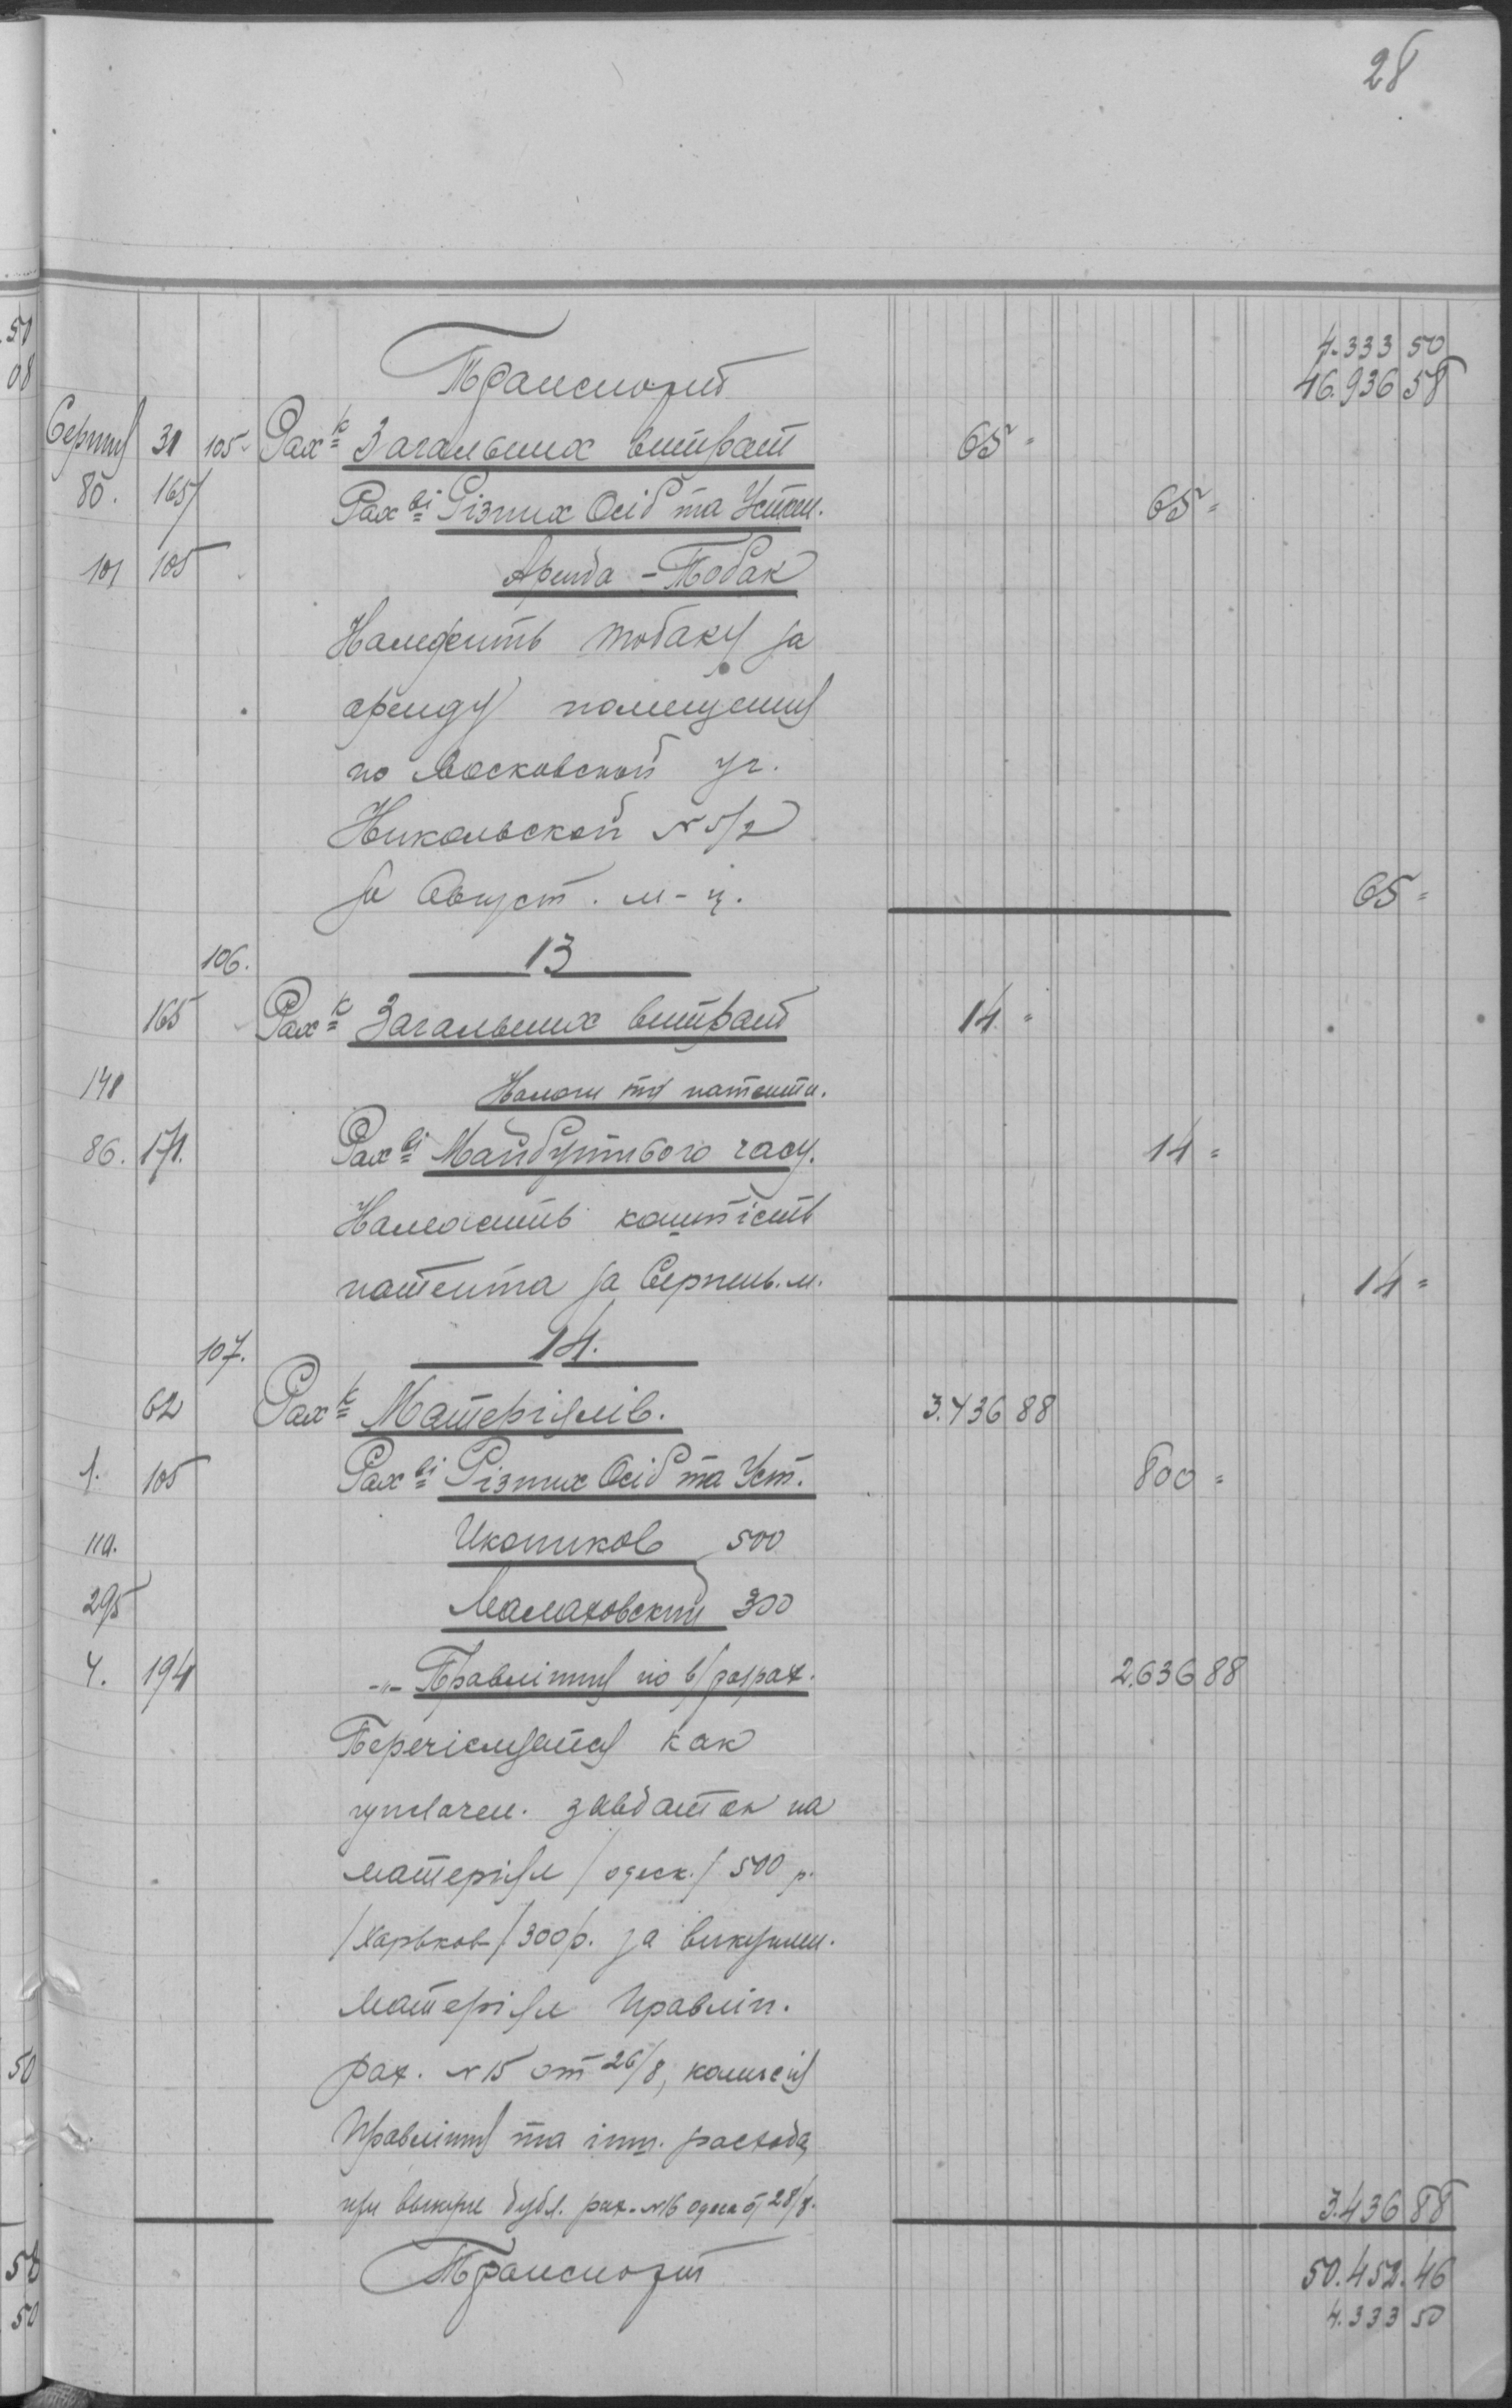 28
Транспорт
4.333 50
46.936 58
Серпня 31 105 Рах-к Загальних витрат 65 =
85. 165 Рах-ві Різних Осіб та Устан. 65 =
101 105 Аренда - Тобак
Належить тобаку за
аренду помещения
по Московской уг.
Никольской № 5/2
за Август. м-ц. 65 =
106. 13
165 Рах-к Загальних витрат 14 =
148 Налоги та патенти.
86. 171. Рах-ві Майбутнього часу. 14 =
Належить коштість
патента за Серпень. м. 14 =
107. 14.
62 Рах-к Матеріялів. 3.436 88
1. 105 Рах-ві Різних Осіб та Уст. 800 =
110. Иконников 500
295 Малаховский 300
4. 194 -"- Правління по в/розрах. 2.636 88
Перечісляется как
уплачен. завдаток на
матеріял /одеск./ 500 р.
/Харьков/ 300 р. за викуплен.
матеріял Правлін.
рах. № 15 от 26/8, комисія
Правління та інш. расхода
при выкупе дубл. рах. № 16 одеса от 28/8. 3.436 88
Транспорт 50.452.46
4.333 50